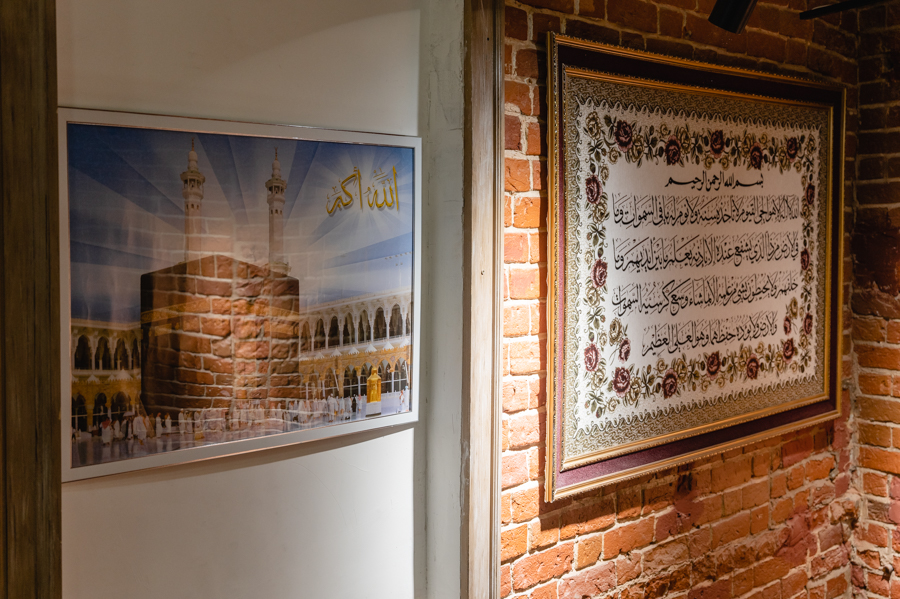 الله أكبر
بسم الله الرحمن الرحيم
الله لا اله الا هو الحي القيوم لا تأخذه سنة ولا نوم له ما في السموات وما
في الارض من ذا الذي يشفع عنده الا باذنه يعلم ما بين ايديهم وما
خلفهم ولا يحيطون بشيء من علمه الا بما شاء وسع كرسيه السموات
والارض ولا يؤده حفظهما وهو العلي العظيم